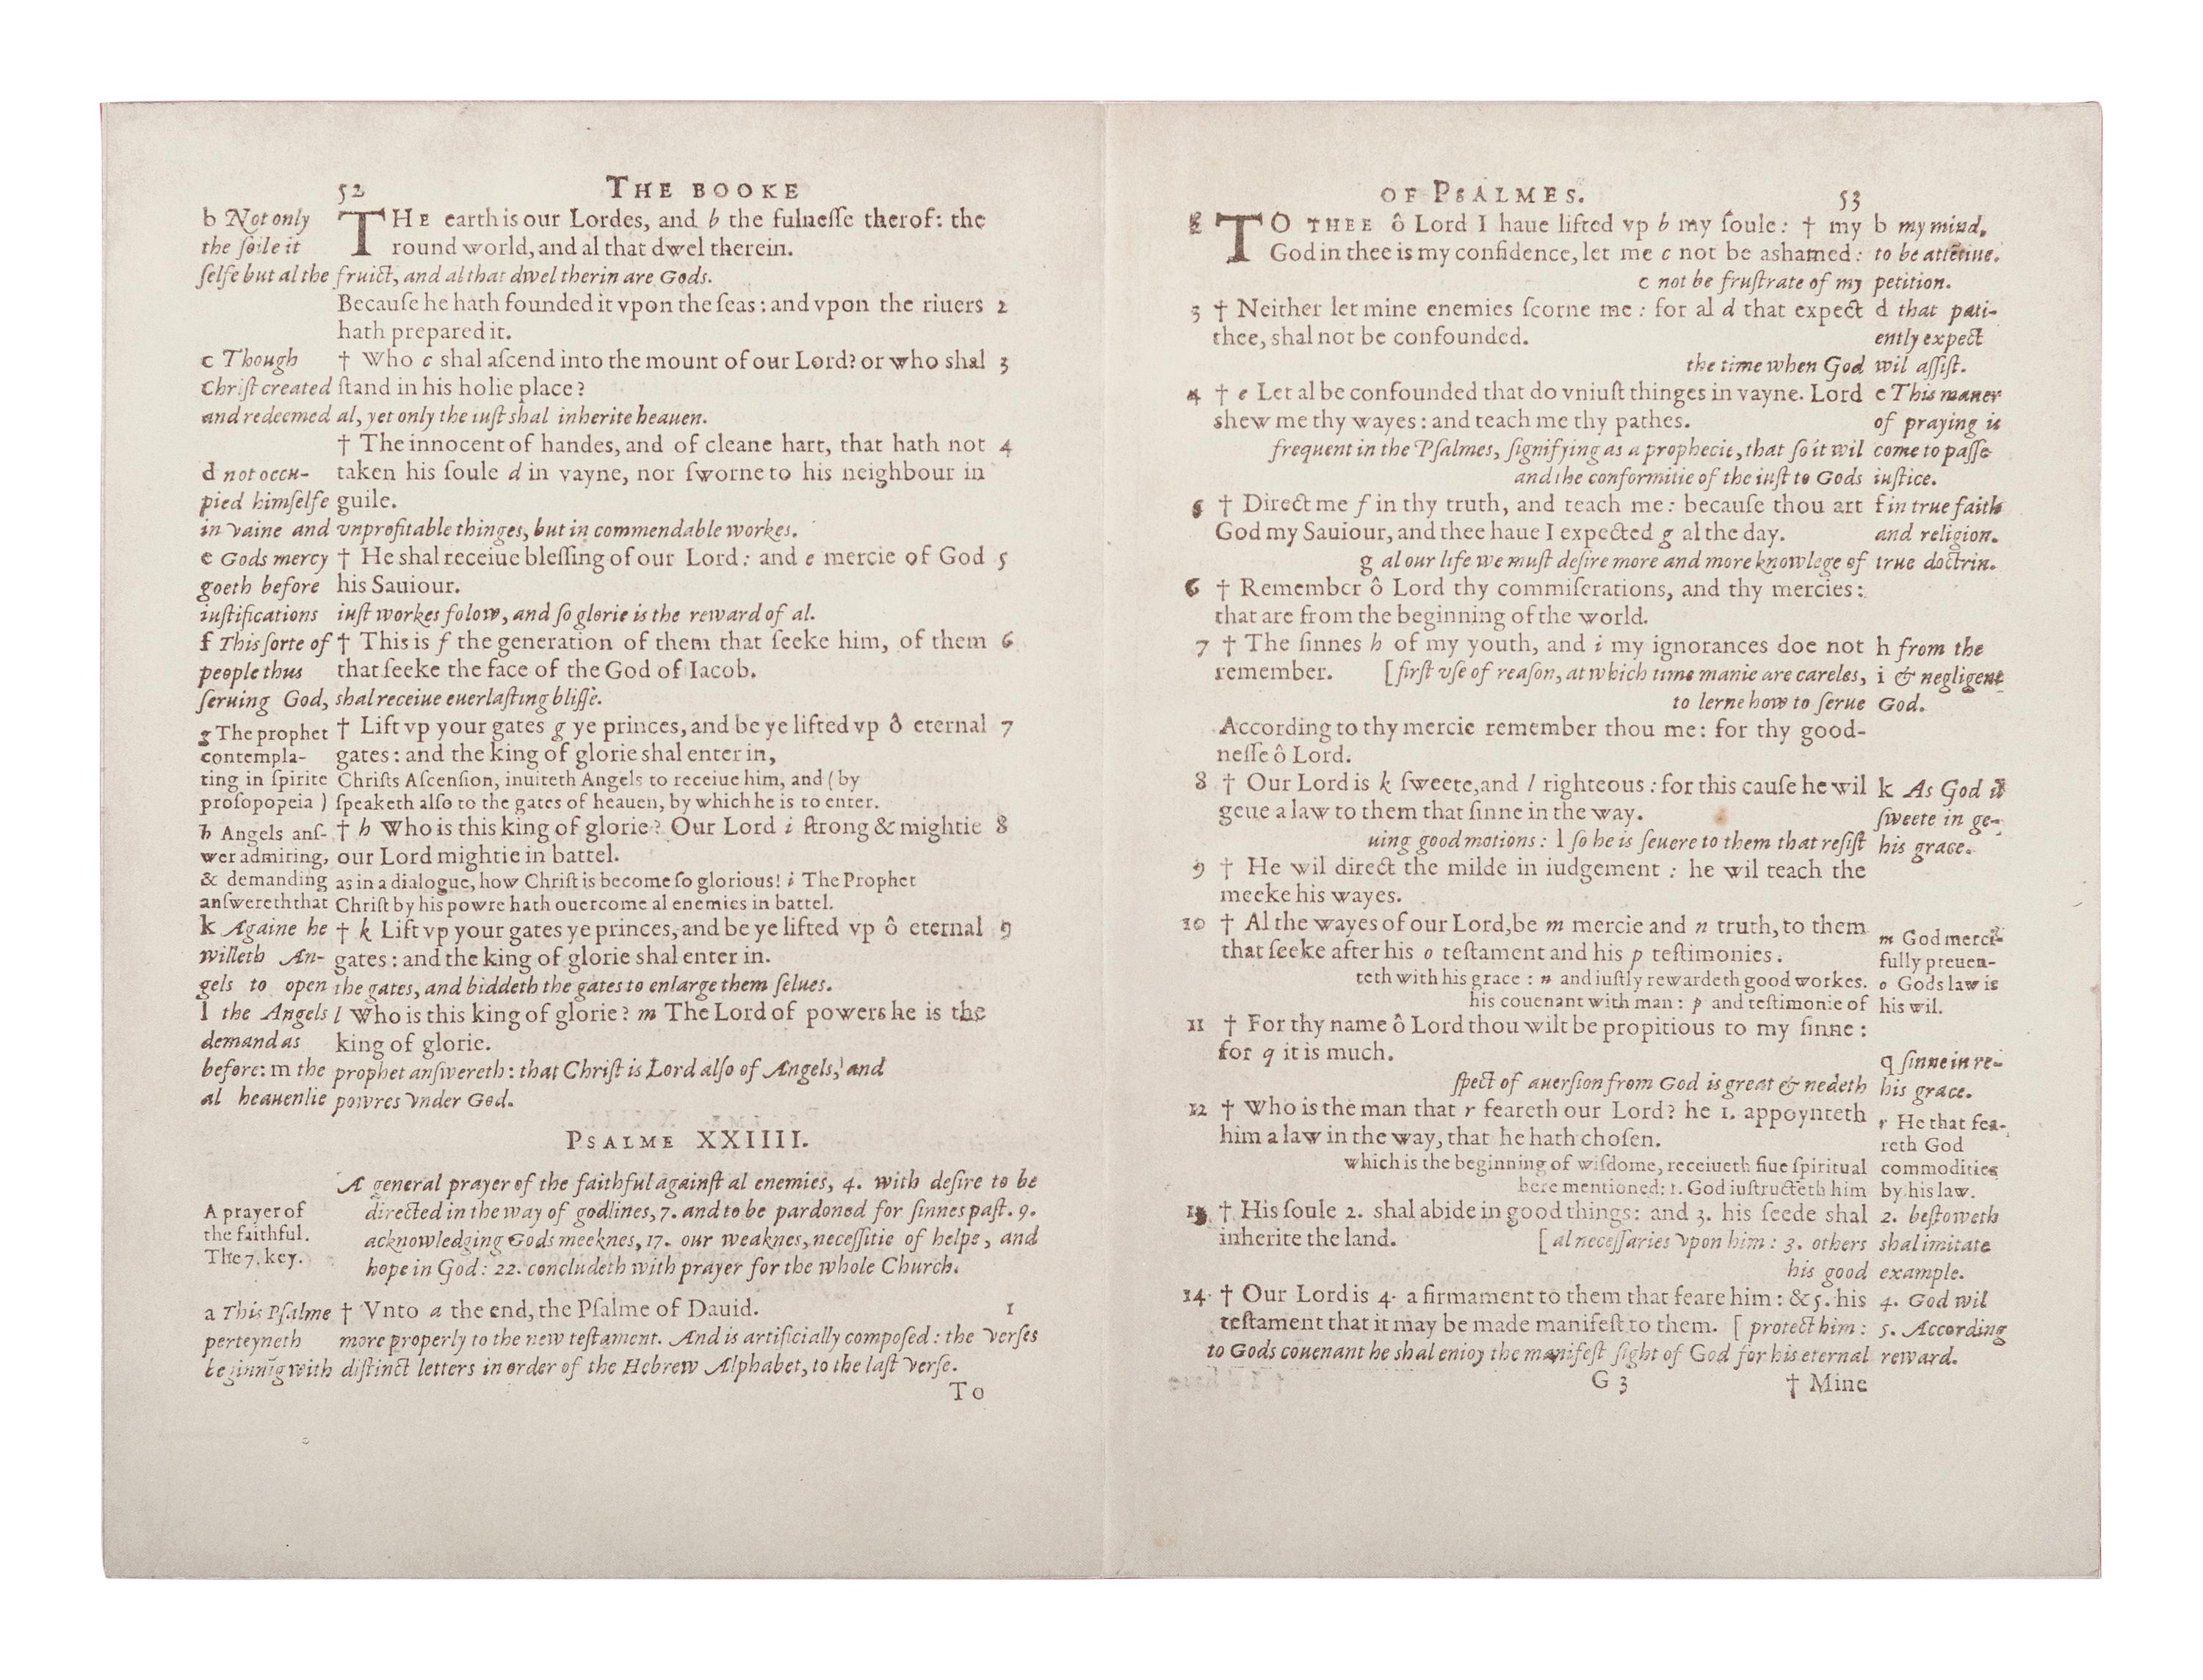 52 THE BOOKE
b Not only THE earth is our Lordes, and b the fulnesse therof: the
the soile it round world, and al that dwel therein.
selfe but al the fruict, and al that dwel therin are Gods.
Because he hath founded it vpon the seas: and vpon the riuers 2
hath prepared it.
c Though † Who c shal ascend into the mount of our Lord? or who shal 3
Christ created stand in his holie place?
and redeemed al, yet only the iust shal inherite heauen.
† The innocent of handes, and of cleane hart, that hath not 4
d not occu- taken his soule d in vayne, nor sworne to his neighbour in
pied himselfe guile.
in vaine and vnprofitable thinges, but in commendable workes.
e Gods mercy † He shal receiue blessing of our Lord: and e mercie of God 5
goeth before his Sauiour.
iustifications iust workes folow, and so glorie is the reward of al.
f This sorte of † This is f the generation of them that seeke him, of them 6
people thus that seeke the face of the God of Iacob.
seruing God, shal receiue euerlasting blisse.
g The prophet † Lift vp your gates g ye princes, and be ye lifted vp ô eternal 7
contempla- gates: and the king of glorie shal enter in,
ting in spirite Christs Ascension, inuiteth Angels to receiue him, and (by
prosopopeia) speaketh also to the gates of heauen, by which he is to enter.
h Angels ans- † h Who is this king of glorie? Our Lord i strong & mightie 8
wer admiring, our Lord mightie in battel.
& demanding as in a dialogue, how Christ is become so glorious! i The Prophet
answereth that Christ by his powre hath ouercome al enemies in battel.
k Againe he † k Lift vp your gates ye princes, and be ye lifted vp ô eternal 9
willeth An- gates: and the king of glorie shal enter in.
gels to open the gates, and biddeth the gates to enlarge them selues.
l the Angels l Who is this king of glorie? m The Lord of powers he is the
demand as king of glorie.
before: m the prophet answereth: that Christ is Lord also of Angels, and
al heauenlie powres vnder God.
PSALME XXIIII.
A general prayer of the faithful against al enemies, 4. with desire to be
A prayer of directed in the way of godlines, 7. and to be pardoned for sinnes past. 9.
the faithful. acknowledging Gods meeknes, 17. our weaknes, necessitie of helpe, and
The 7. key. hope in God: 22. concludeth with prayer for the whole Church.
a This Psalme † Vnto a the end, the Psalme of Dauid. 1
perteyneth more properly to the new testament. And is artificially composed: the verses
beginnīg with distinct letters in order of the Hebrew Alphabet, to the last verse.
To
OF PSALMES. 53
2 TO THEE ô Lord I haue lifted vp b my soule: † my b my mind,
God in thee is my confidence, let me c not be ashamed: to be attētiue.
c not be frustrate of my petition.
3 † Neither let mine enemies scorne me: for al d that expect d that pati-
thee, shal not be confounded. ently expect
the time when God wil assist.
4 † e Let al be confounded that do vniust thinges in vayne. Lord e This maner
shew me thy wayes: and teach me thy pathes. of praying is
frequent in the Psalmes, signifying as a prophecie, that so it wil come to passe
and the conformitie of the iust to Gods iustice.
5 † Direct me f in thy truth, and teach me: because thou art f in true faith
God my Sauiour, and thee haue I expected g al the day. and religion.
g al our life we must desire more and more knowlege of true doctrin.
6 † Remember ô Lord thy commiserations, and thy mercies:
that are from the beginning of the world.
7 † The sinnes h of my youth, and i my ignorances doe not h from the
remember. [first vse of reason, at which time manie are careles, i & negligent
to lerne how to serue God.
According to thy mercie remember thou me: for thy good-
nesse ô Lord.
8 † Our Lord is k sweete, and l righteous: for this cause he wil k As God is
geue a law to them that sinne in the way. sweete in ge-
uing good motions: l so he is seuere to them that resist his grace.
9 † He wil direct the milde in iudgement: he wil teach the
meeke his wayes.
10 † Al the wayes of our Lord, be m mercie and n truth, to them m God merci-
that seeke after his o testament and his p testimonies. fully preuen-
teth with his grace: n and iustly rewardeth good workes. o Gods law is
his couenant with man: p and testimonie of his wil.
11 † For thy name ô Lord thou wilt be propitious to my sinne:
for q it is much. q sinne in re-
spect of auersion from God is great & nedeth his grace.
12 † Who is the man that r feareth our Lord? he 1. appoynteth r He that fea-
him a law in the way, that he hath chosen. reth God
which is the beginning of wisdome, receiueth fiue spiritual commodities
here mentioned: 1. God instructeth him by his law.
13 † His soule 2. shal abide in good things: and 3. his seede shal 2. bestoweth
inherite the land. [al necessaries vpon him: 3. others shal imitate
his good example.
14 † Our Lord is 4. a firmament to them that feare him: & 5. his 4. God wil
testament that it may be made manifest to them. [protect him: 5. According
to Gods couenant he shal enioy the manifest sight of God for his eternal reward.
G 3 † Mine